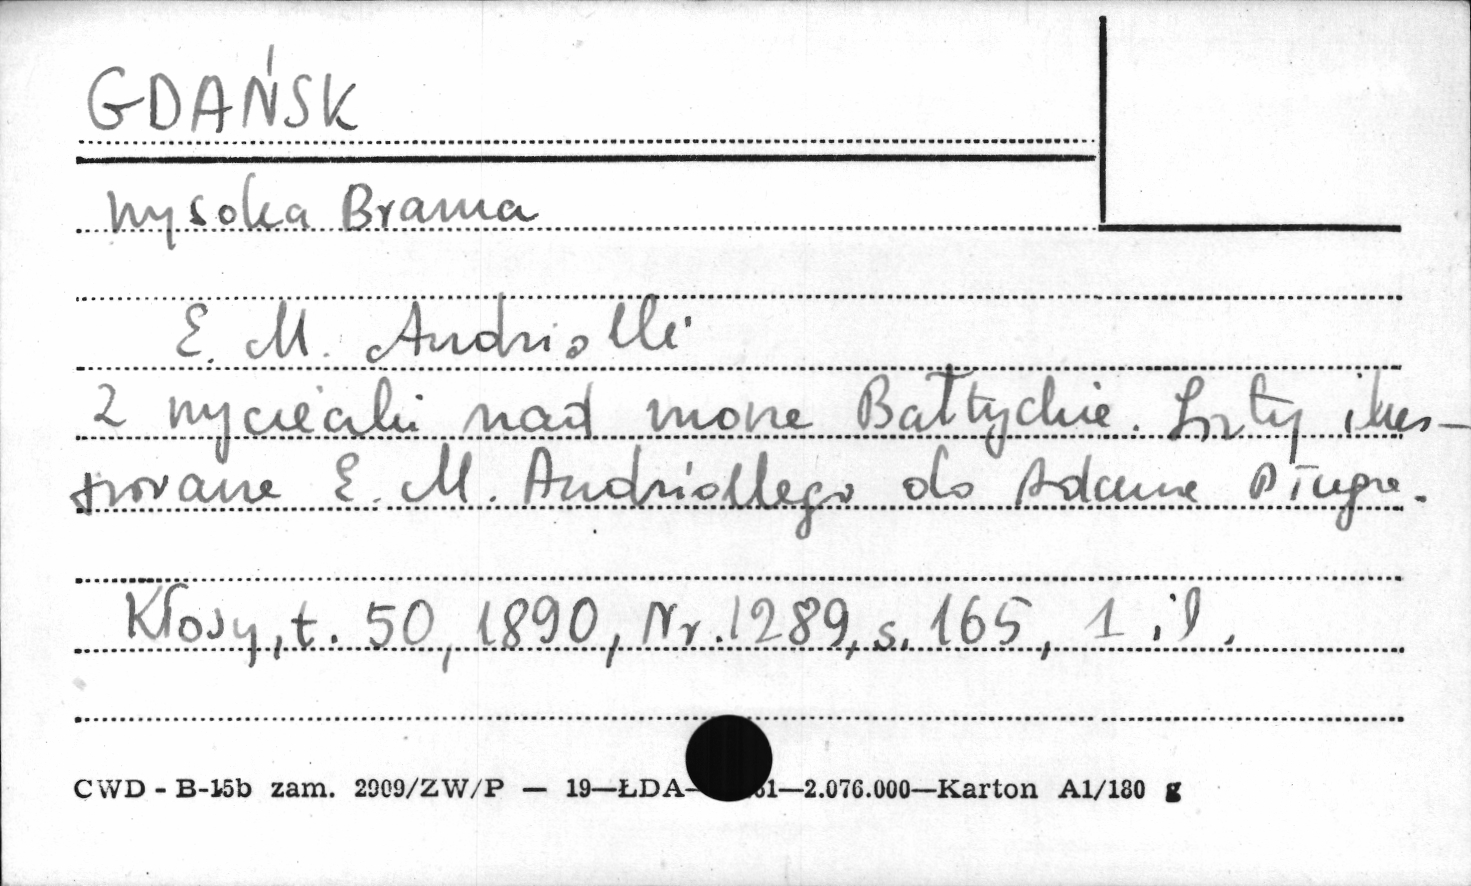 GDAŃSK
Wysoka Brama
E. M. Andriolli
Z wycieczki nad morze Bałtyckie. Listy ilus-
trowane E. M. Andriollego do Adama Pługa.
Kłosy, t. 50, 1890, Nr. 1289, s. 165, 1 il.
CWD - B-15b zam. 2909/ZW/P — 19—ŁDA— 61—2.076.000—Karton A1/180 g